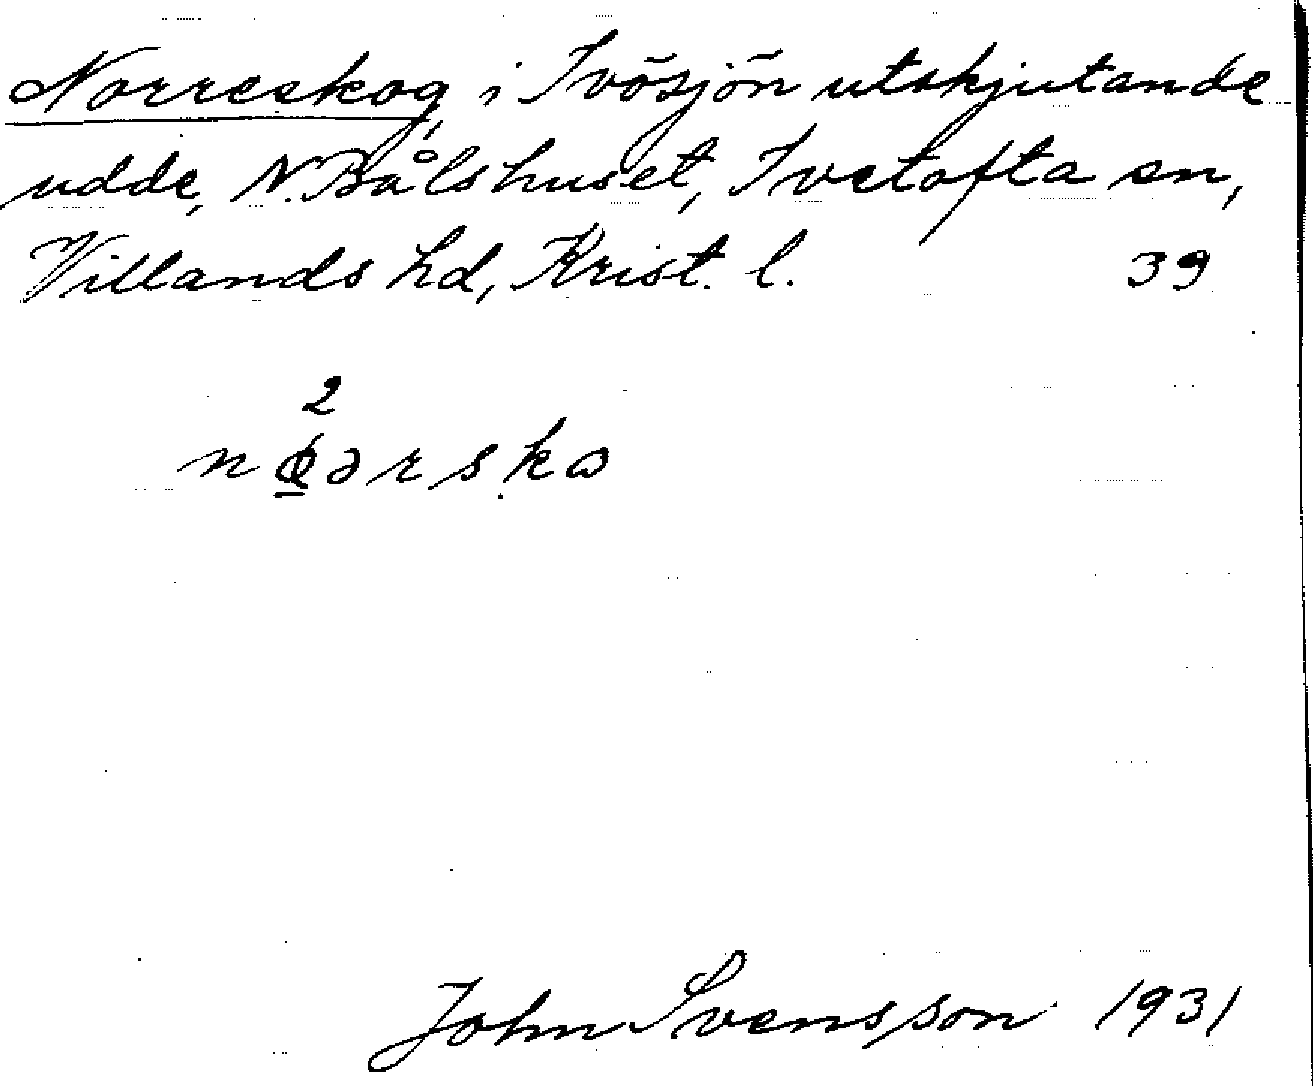 Norreskog, i Ivösjön utskjutande
udde, N. Bålshuset, Ivetofta sn,
Villands hd, Krist. l. 39
2
nφ̲ərskɷ
John Svensson 1931